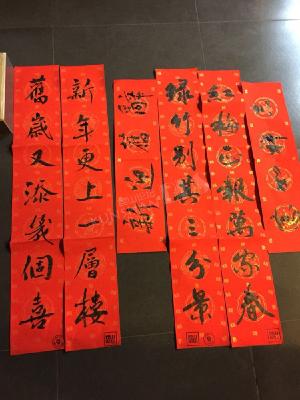 紅梅正報萬家春
綠竹別其三分景
辭舊迎新
新年更上一層樓
舊歲又添幾個喜